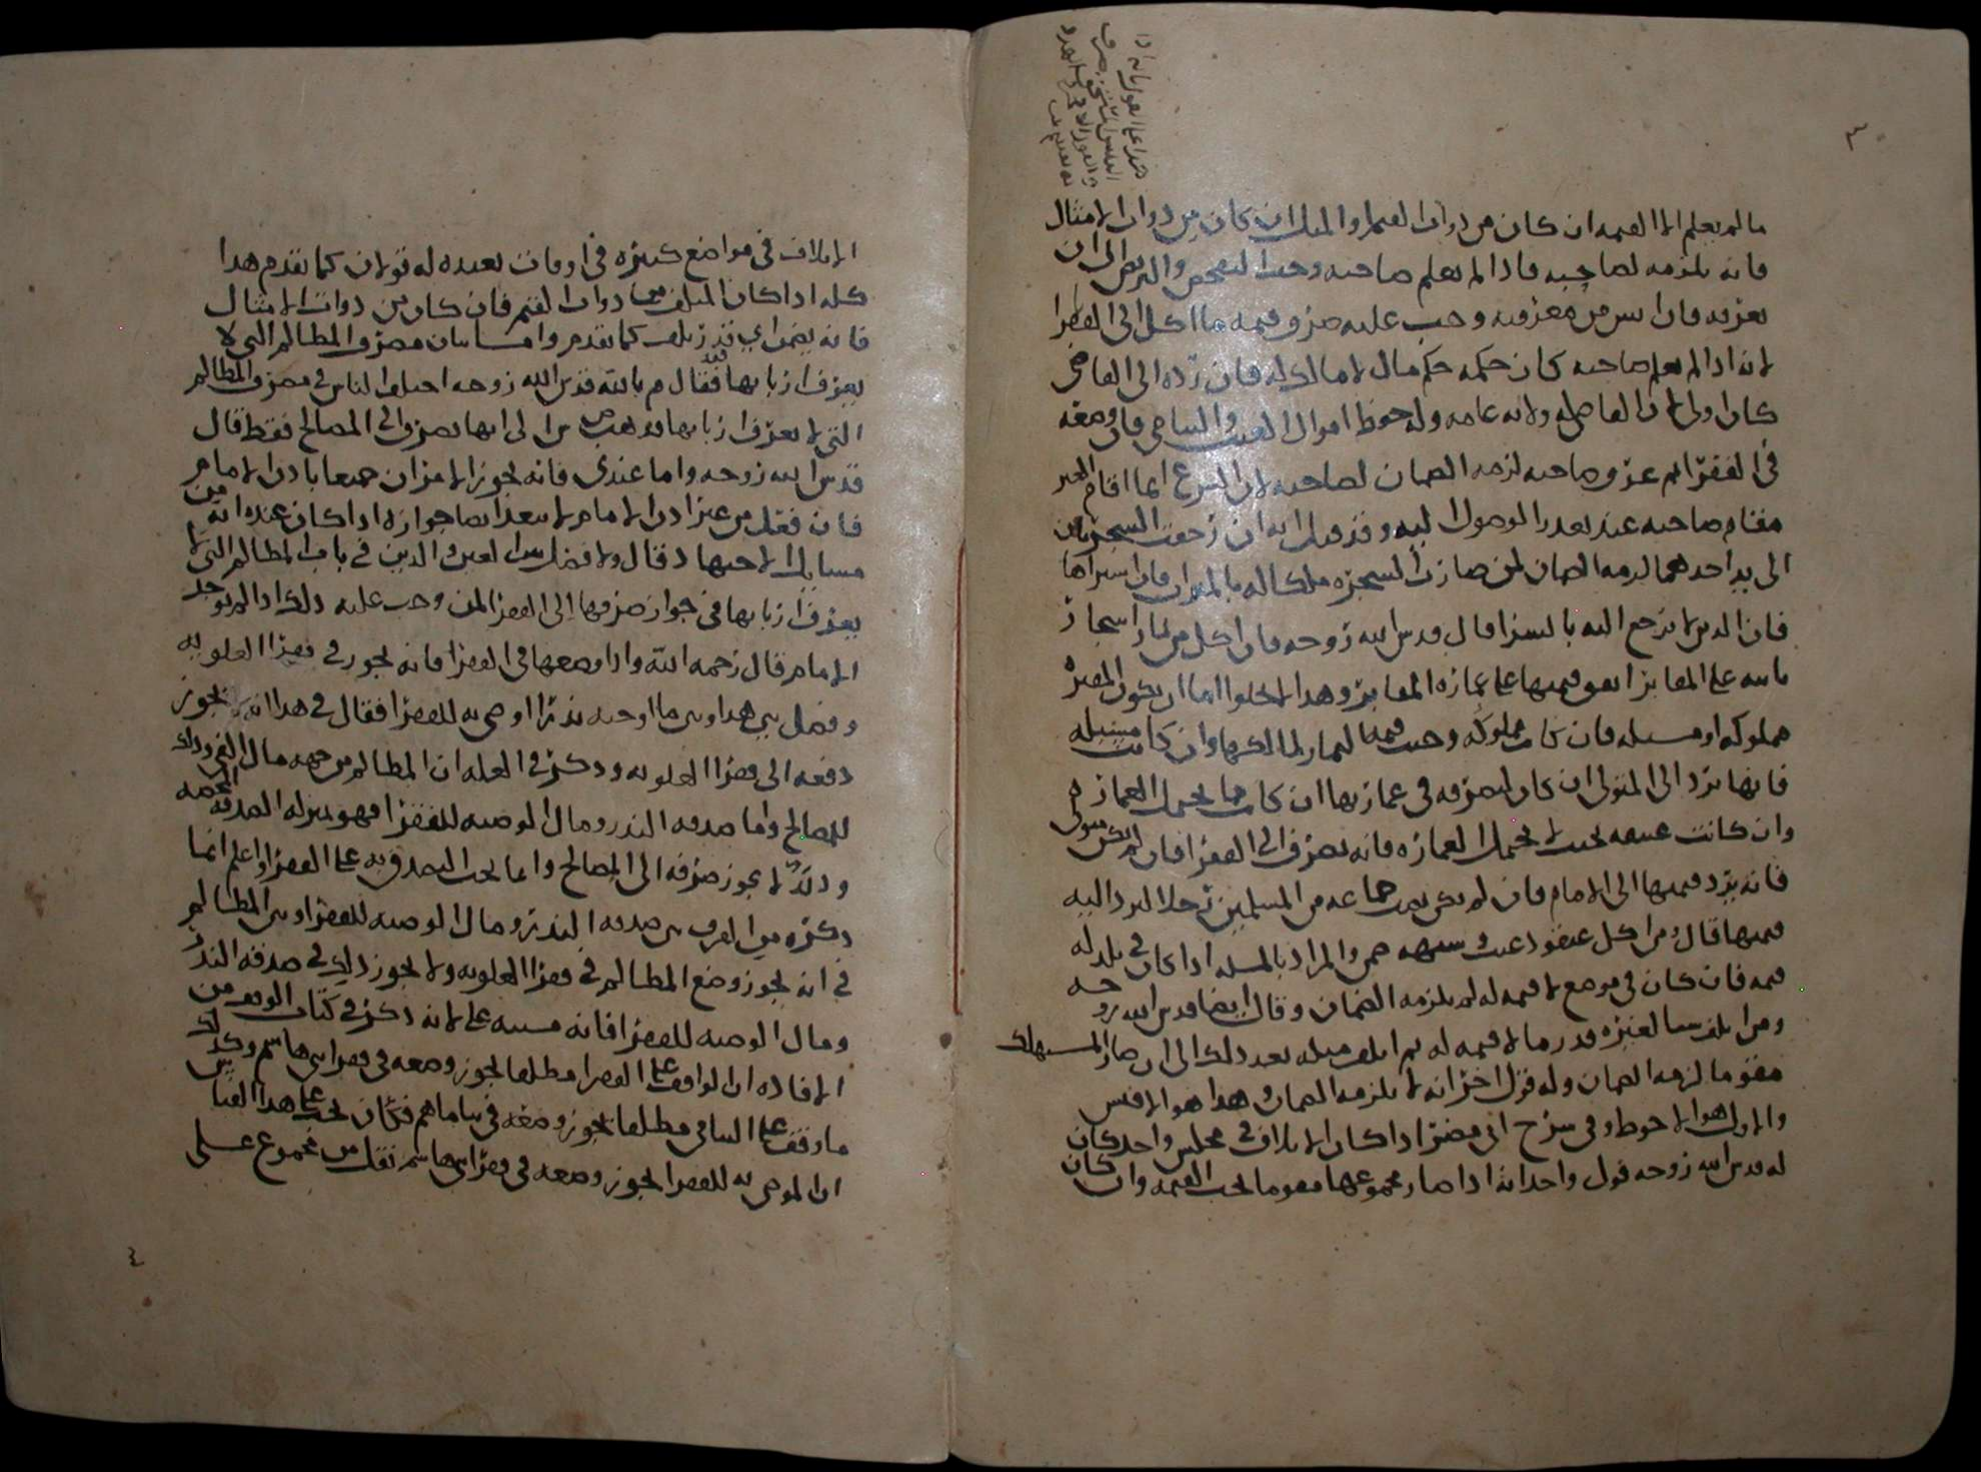 ما لم يعلم الا القيمه ان كان من ذوات القيم او المثل ان كان من ذوات الامثال
فانه يلزمه لصاحبه فاذا لم يعلم صاحبه وجب التفحص والتربص الى ان
يعرفه فان ايس من معرفته وجب عليه صرف قيمه ما اكل الى الفقرا
لانه اذا لم يعلم صاحبه كان حكمه حكم مال لا مالك له فان رده الى القاضي
كان اولى لان القاضي له ولايه عامه وله حفظ اموال الغيب واليتامى فان وضعه
في الفقرا ثم عرف صاحبه لزمه الضمان لصاحبه لان الشرع انما اقام الفقير
مقام صاحبه عند تعذر الوصول اليه وقد قيل انه ان رجعت الشجرتان
الى يد احدهما لزمه الضمان لمن صارت الشجره ملكا له بالميراث فان اشتراها
فان الدين لا يرجع اليه بالشرا قال قدس الله روحه فان اكل من ثمار اشجار
نابته على المقابر انفق قيمتها على عماره المقابر وهذا لا يخلوا اما ان يكون المقبره
مملوكه او مسبله فان كانت مملوكه وجبت قيمه الثمار لمالكها وان كانت مسبله
فانها ترد الى المتولي ان كان ليصرفه في عمارتها ان كانت مما يحتمل العماره
وان كانت عتيقه بحيث لا يحتمل العماره فانه يصرف الى الفقرا فان لم يكن متولي
فانه يرد قيمتها الى الامام فان لم يكن نصب جماعه من المسلمين رجلا لترد اليه
قيمتها قال ومن اكل عنقود عنب وسنبله ضمن والمراد بالمسله اذا كان في بلد له
قيمه فان كان في موضع لا قيمه له لم يلزمه الضمان وقال ايضا قدس الله روحه
ومن اتلف شيا لغيره قدر ما لا قيمه له ثم اتلف مثله بعد ذلك الى ان صار المستهلك
مقوما لزمه الضمان وله قول اخر انه لا يلزمه الضمان وهذا هو الاقيس
والاول هو الاحوط وفي شرح ابي مضر اذا كان الاتلاف في مجلس واحد كان
له قدس الله روحه قول واحد انه اذا صار مجموعها مقوما يجب القيمه وان كان
الاتلاف في مواضع كثيره في اوقات بعيده له قولان كما تقدم هذا
كله اذا كان المتلف من ذوات القيم فان كان من ذوات الامثال
فانه يضمن اي قدر تلف كما تقدم واما بيان مصرف المظالم التي لا
يعرف اربابها فقد قال م بالله قدس الله روحه اختلف الناس في مصرف المظالم
التي لا يعرف اربابها فذهب ص الى انها تصرف الى المصالح فقط قال
قدس الله روحه واما عندي فانه يجوز الامران جميعا باذن الامام
فان فعل من غير اذن الامام لا يبعد ايضا جوازه اذا كان عنده انه من
مسايل الاجتهاد قال ولا فصل بين العين والدين في باب المظالم التي لا
يعرف اربابها في جواز صرفها الى الفقرا لمن وجب عليه ذلك اذا لم يوجد
الامام قال رحمه الله واذا وضعها في الفقرا فانه يجوز في فقرا العلويه
وفصل بين هذا وبين ما اوجبه نذرا او وصى به للفقرا فقال في هذا انه لا يجوز
دفعه الى فقرا العلويه وذكر في العله ان المظالم من جهه مال الفي وذلك
للمصالح واما صدقه النذر ومال الوصيه للفقرا فهو بمنزله الصدقه المحضه
وذلك لا يجوز صرفه الى المصالح وانما يجب التصدق به على الفقرا واعلم انما
ذكره من الفرق بين صدقه النذر ومال الوصيه للفقرا وبين المظالم
في انه يجوز وضع المظالم في فقرا العلويه ولا يجوز ذلك في صدقه النذر
ومال الوصيه للفقرا فانه مبني على لانه ذكر في كتاب الوقف من
الافاده ان الواقف على الفقرا مطلقا يجوز وضعه في فقرا بني هاشم وكذلك
ما وقف على اليتامى مطلقا يجوز وضعه في يتاماهم فكان يجب على هذا القياس
ان الموصى به للفقرا يجوز وضعه في فقرا بني هاشم نقل من مجموع علي